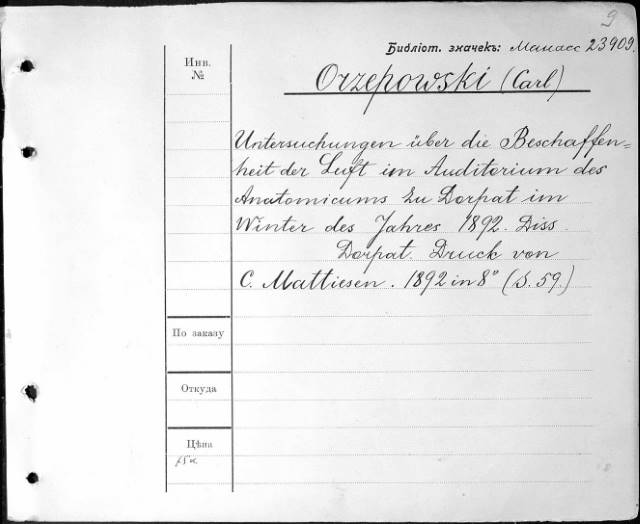 9
Библіот. значекъ: Манасс 23909.
Инв.
№
Orzepowski (Carl)
Untersuchungen über die Beschaffen=
heit der Luft im Auditorium des
Anatomicums zu Dorpat im
Winter des Jahres 1892. Diss.
Dorpat. Druck von
C. Mattiesen. 1892 in 8° (S. 59.)
По заказу
Откуда
Цѣна